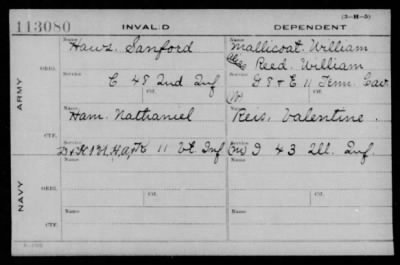 (3-H-5)
113080 INVALID DEPENDENT
Name Name
Haws. Sanford Mallicoat. William
alias Reed William
ORIG. Service Ctf. Service Ctf.
C 48 Ind Inf G 8 & E 11 Tenn Cav
ARMY
Name Name
Ham. Nathaniel Reis, Valentine.
CTF. Service Ctf. Service Ctf.
K 11 Vt. Inf D 43 Ill. Inf
Name Name
ORIG. Service Ctf. Service Ctf.
NAVY
Name Name
CTF. Service Ctf. Service Ctf.